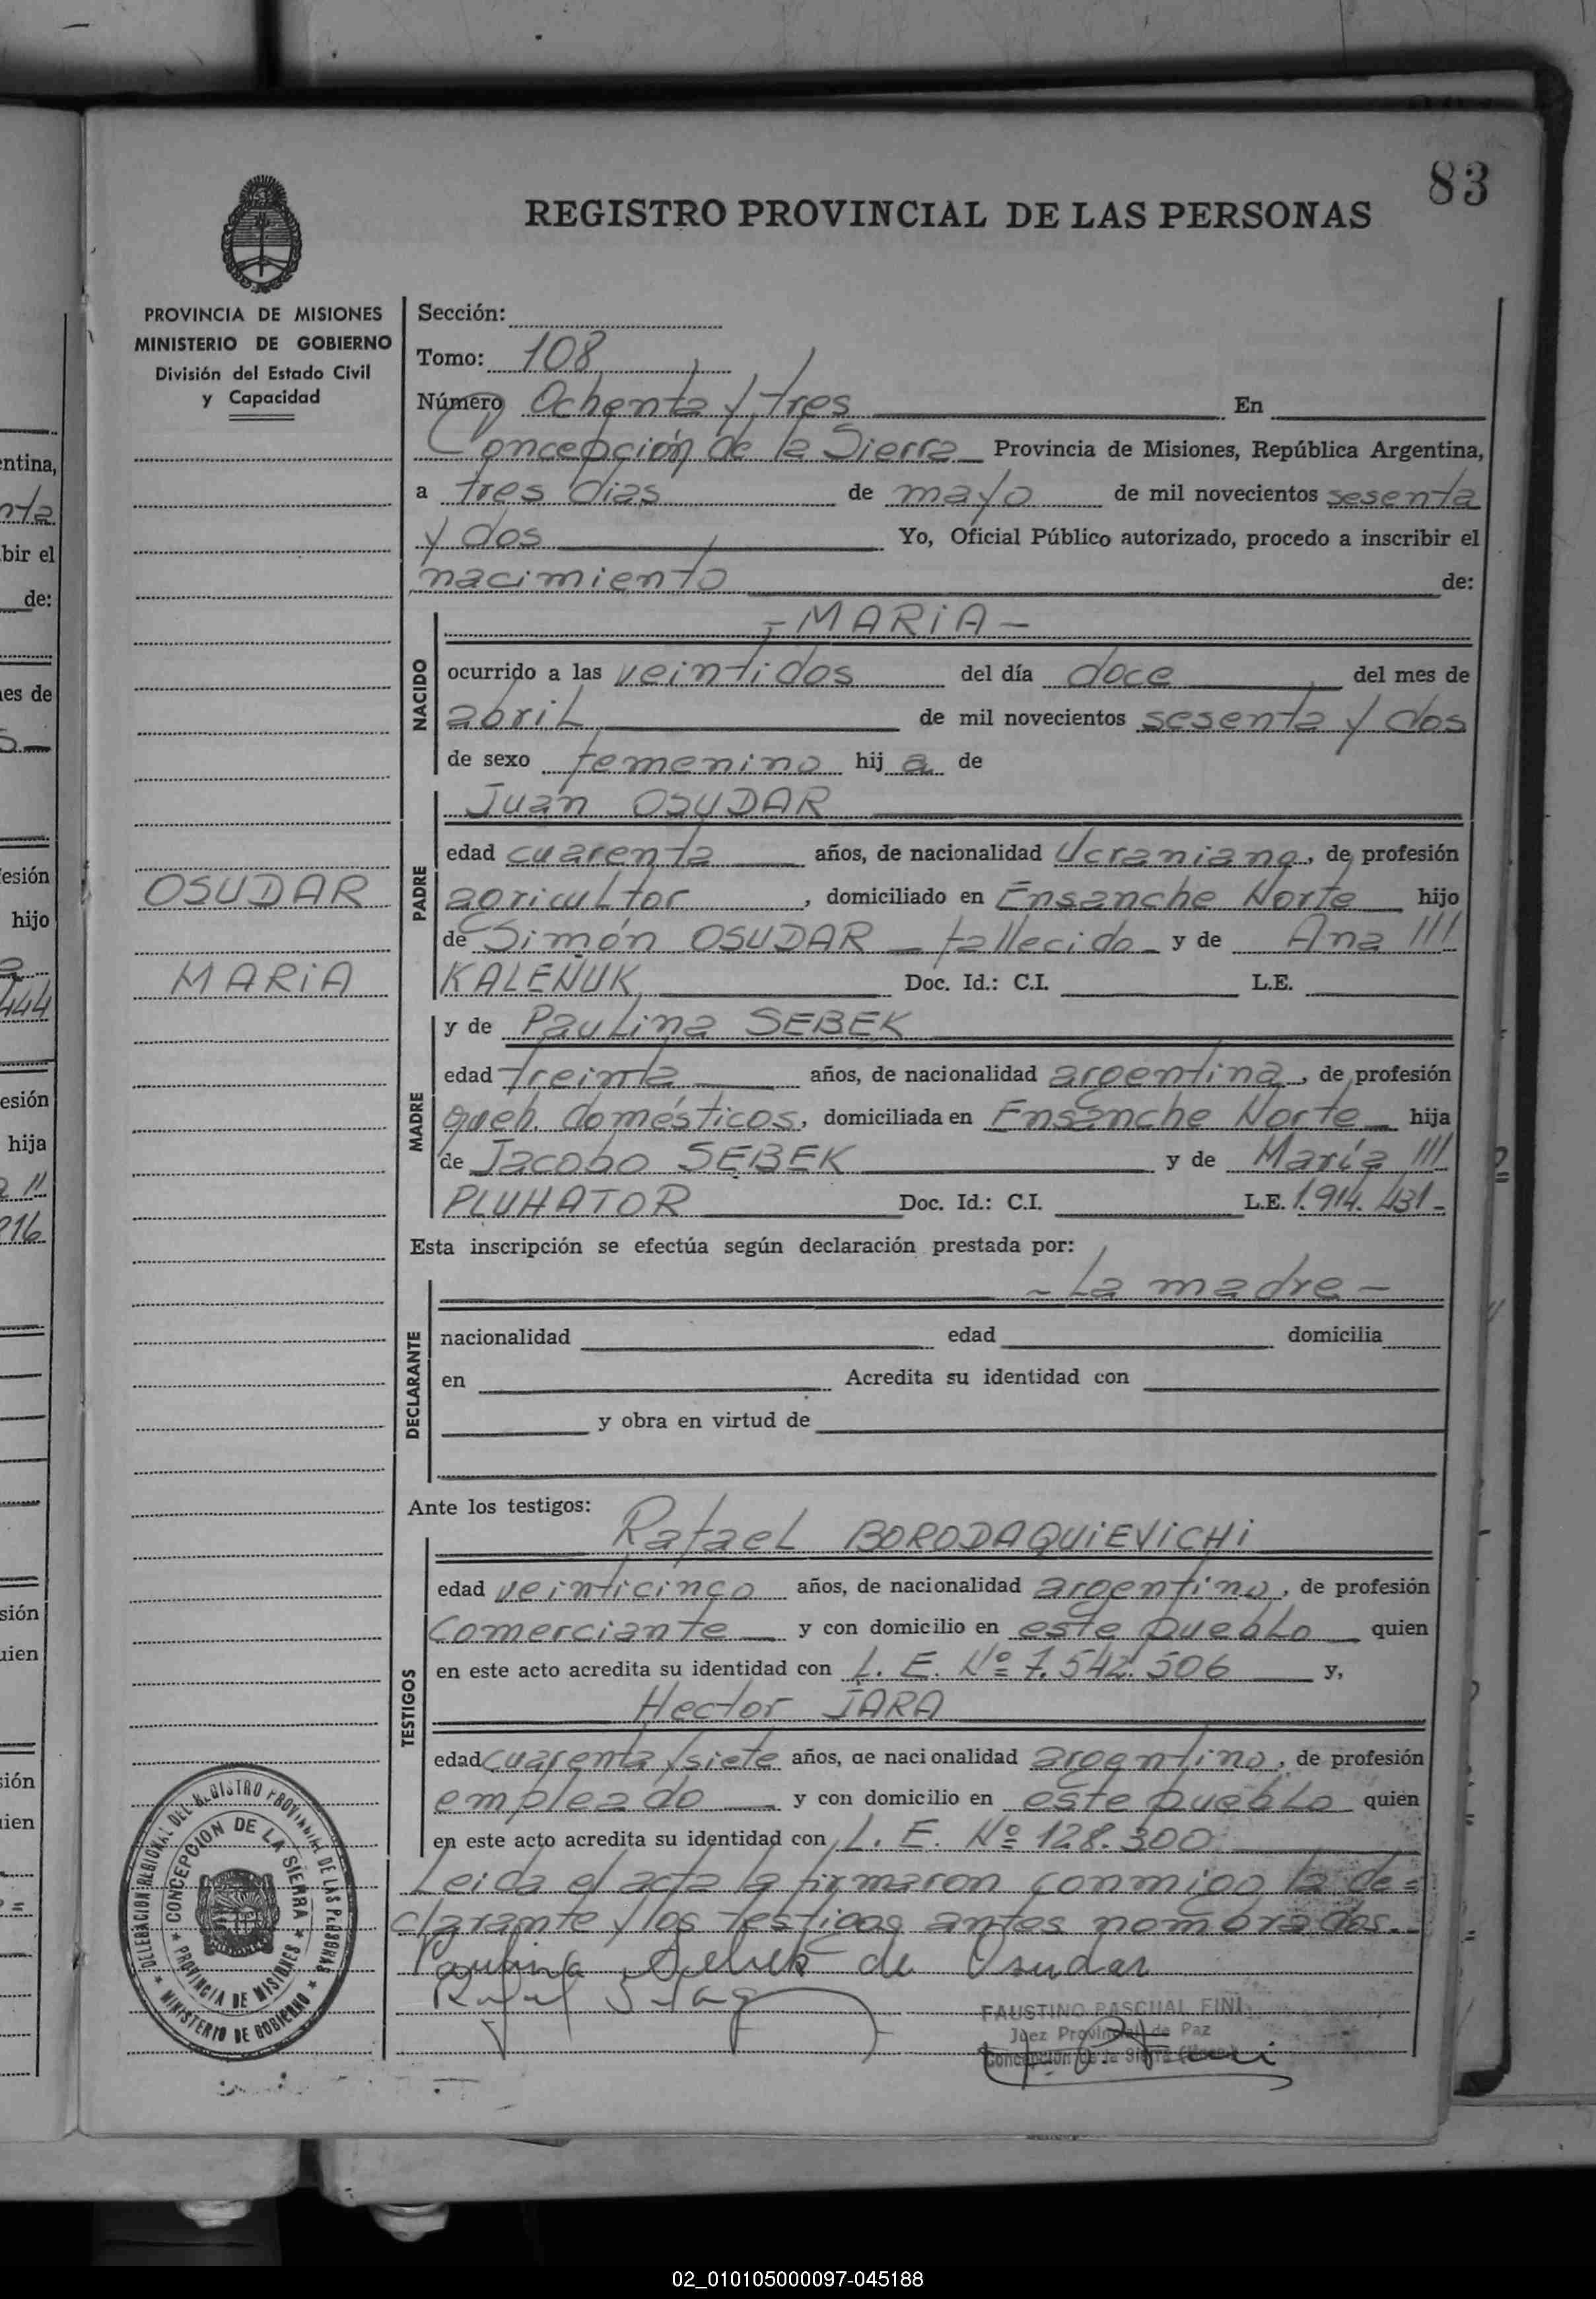 83
REGISTRO PROVINCIAL DE LAS PERSONAS
PROVINCIA DE MISIONES
MINISTERIO DE GOBIERNO
División del Estado Civil
y Capacidad
Sección:
Tomo: 108
Número Ochenta y tres En
Concepción de la Sierra Provincia de Misiones, República Argentina,
a tres dias de mayo de mil novecientos sesenta
y dos Yo, Oficial Público autorizado, procedo a inscribir el
nacimiento de:
NACIDO
- MARIA -
ocurrido a las veintidos del día doce del mes de
abril de mil novecientos sesenta y dos
de sexo femenino hij a de
PADRE
Juan OSUDAR
edad cuarenta años, de nacionalidad Ucraniano, de profesión
agricultor, domiciliado en Ensanche Norte hijo
de Simón OSUDAR - fallecido - y de Ana ///
KALEÑUK Doc. Id.: C.I. L.E.
OSUDAR
MARIA
MADRE
y de Paulina SEBEK
edad treinta años, de nacionalidad argentina, de profesión
queh. domésticos, domiciliada en Ensanche Norte hija
de Jacobo SEBEK y de María ///
PLUHATOR Doc. Id.: C.I. L.E. 1.914.431-
Esta inscripción se efectúa según declaración prestada por:
DECLARANTE
- La madre -
nacionalidad edad domicilia
en Acredita su identidad con
y obra en virtud de
Ante los testigos:
TESTIGOS
Rafael BORODAQUIEVICHI
edad veinticinco años, de nacionalidad argentino, de profesión
Comerciante y con domicilio en este pueblo quien
en este acto acredita su identidad con L. E. Nº 7.542.506 y,
Hector JARA
edad cuarenta y siete años, de nacionalidad argentino, de profesión
empleado y con domicilio en este pueblo quien
en este acto acredita su identidad con L. E. Nº 128.300
Leida el acta la firmaron conmigo la de=
clarante y los testigos antes nombrados.-
Paulina Sebek de Osudar
FAUSTINO PASCUAL FINI
Juez Provincial de Paz
Concepción de la Sierra
DELEGACION REGIONAL DEL REGISTRO PROVINCIAL DE LAS PERSONAS
MINISTERIO DE GOBIERNO
CONCEPCION DE LA SIERRA
PROVINCIA DE MISIONES
ntina,
nta
bir el
de:
es de
esión
hijo
444
esión
hija
216
sión
uien
sión
uien
02_010105000097-045188